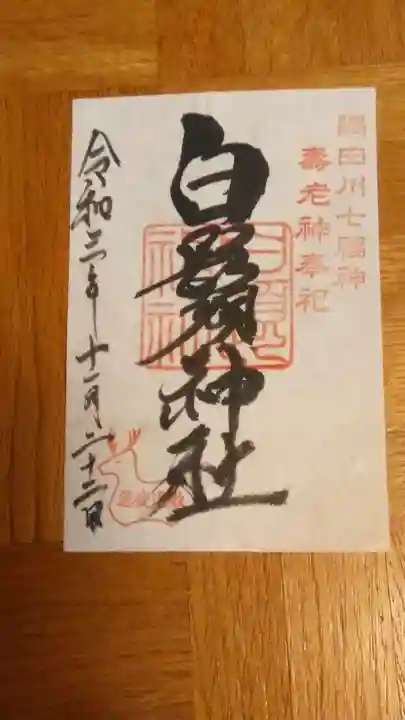 隅田川七福神
壽老神奉祀
白鬚神社
令和三年十一月二十二日